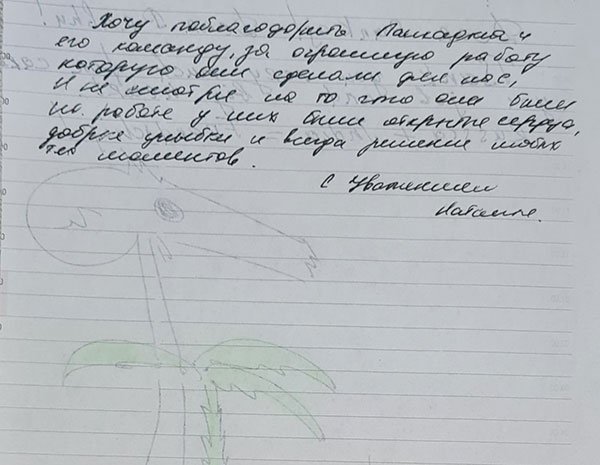 Хочу поблагодарить и
его команду, за огромную работу
которую они сделали для нас,
И не смотря на то что они были
на работе у них были открытые сердца,
добрые улыбки и всегда решение любых
тех моментов.
С Уважением
Наталия.